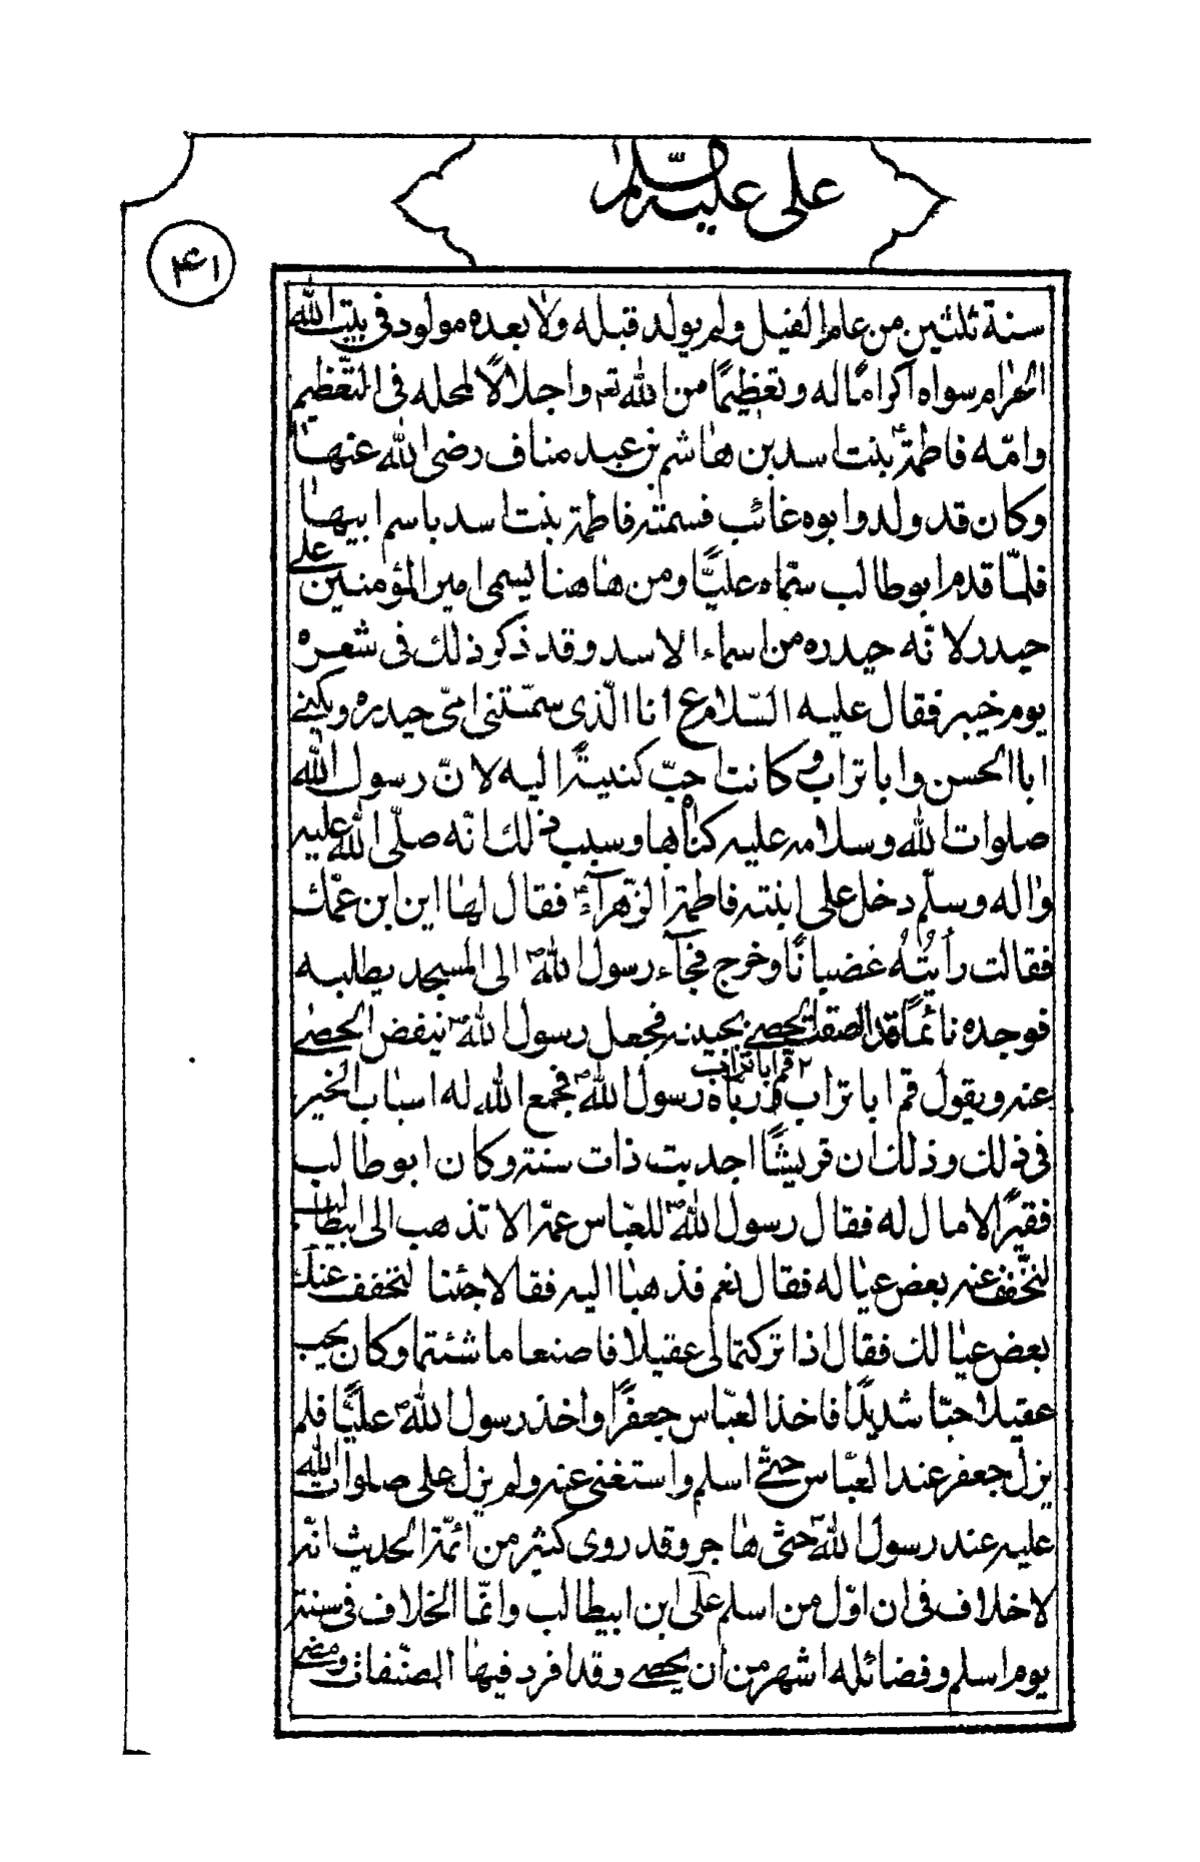 علی علیه السّلام
۴۱
سنة ثلثین من عام الفیل ولم یولد قبله ولا بعده مولود فی بیت الله
الحرام سواه اکرامًا له وتعظیمًا من الله تعـ واجلالًا لمحله فی التعّظیم
وامّه فاطمةؑ بنت اسد بن هاشم بن عبد مناف رضی الله عنها
وکان قد ولد وابوه غائب فسمته فاطمة بنت اسد باسم ابیها
فلمّا قدم ابوطالب سمّاه علیًّا ومن هاهنا یسمی امیر المؤمنین علی
حیدر لانّه حیدره من اسماء الاسد وقد ذکر ذلك فی شعره
یوم خیبر فقال علیه السّلام ع انا الّذی سمّتنی امّی حیدره ویکنی
ابا الحسن وابا تراب وکانت احبّ کنیةً الیه لانّ رسول الله
صلوات الله وسلامه علیه کناه بها وسبب ذلك انّه صلّی الله علیه
واله وسلّم دخل علی ابنته فاطمة الزّهرآءؑ فقال لها این ابن عمّك
فقالت رأیتُهُ غضبانًا وخرج فجآء رسول اللهؐ الی المسجد یطلبه
فوجده نائمًا قد الصقلت الحصی بجبینه فجعل رسول اللهؐ ینفض الحصی
عنه ویقول قم ابا تراب قم ابا تراب ۲ ربّاه رسول اللهؐ فجمع الله له اسباب الخیر
فی ذلك وذلك ان قریشًا اجدبت ذات سنة وکان ابو طالب
فقیرًا لا مال له فقال رسول اللهؐ للعبّاس عمّه الا تذهب الی ابیطالب
لنخّفف عنه بعض عیاله فقال نعم فذهبا الیه فقالا جئنا لنخفف عنك
بعض عیالك فقال اذا ترکتما لی عقیلا فاصنعا ما شئتما وکان یحب
عقیلا حبّا شدیدًا فاخذ العبّاس جعفرًا واخذ رسول اللهؐ علیًّا فلم
یزل جعفر عند العبّاس حتّی اسلم واستغنی عنه ولم یزل علی صلوات الله
علیه عند رسول اللهؐ حتّی هاجر وقد روی کثیر من ائمّة الحدیث انّه
لا خلاف فی ان اوّل من اسلم علی ابن ابیطالب وانّما الخلاف فی سنة
یوم اسلم وفضائله اشهر من ان یحصی وقد افرد فیها المصنّفات ومضی